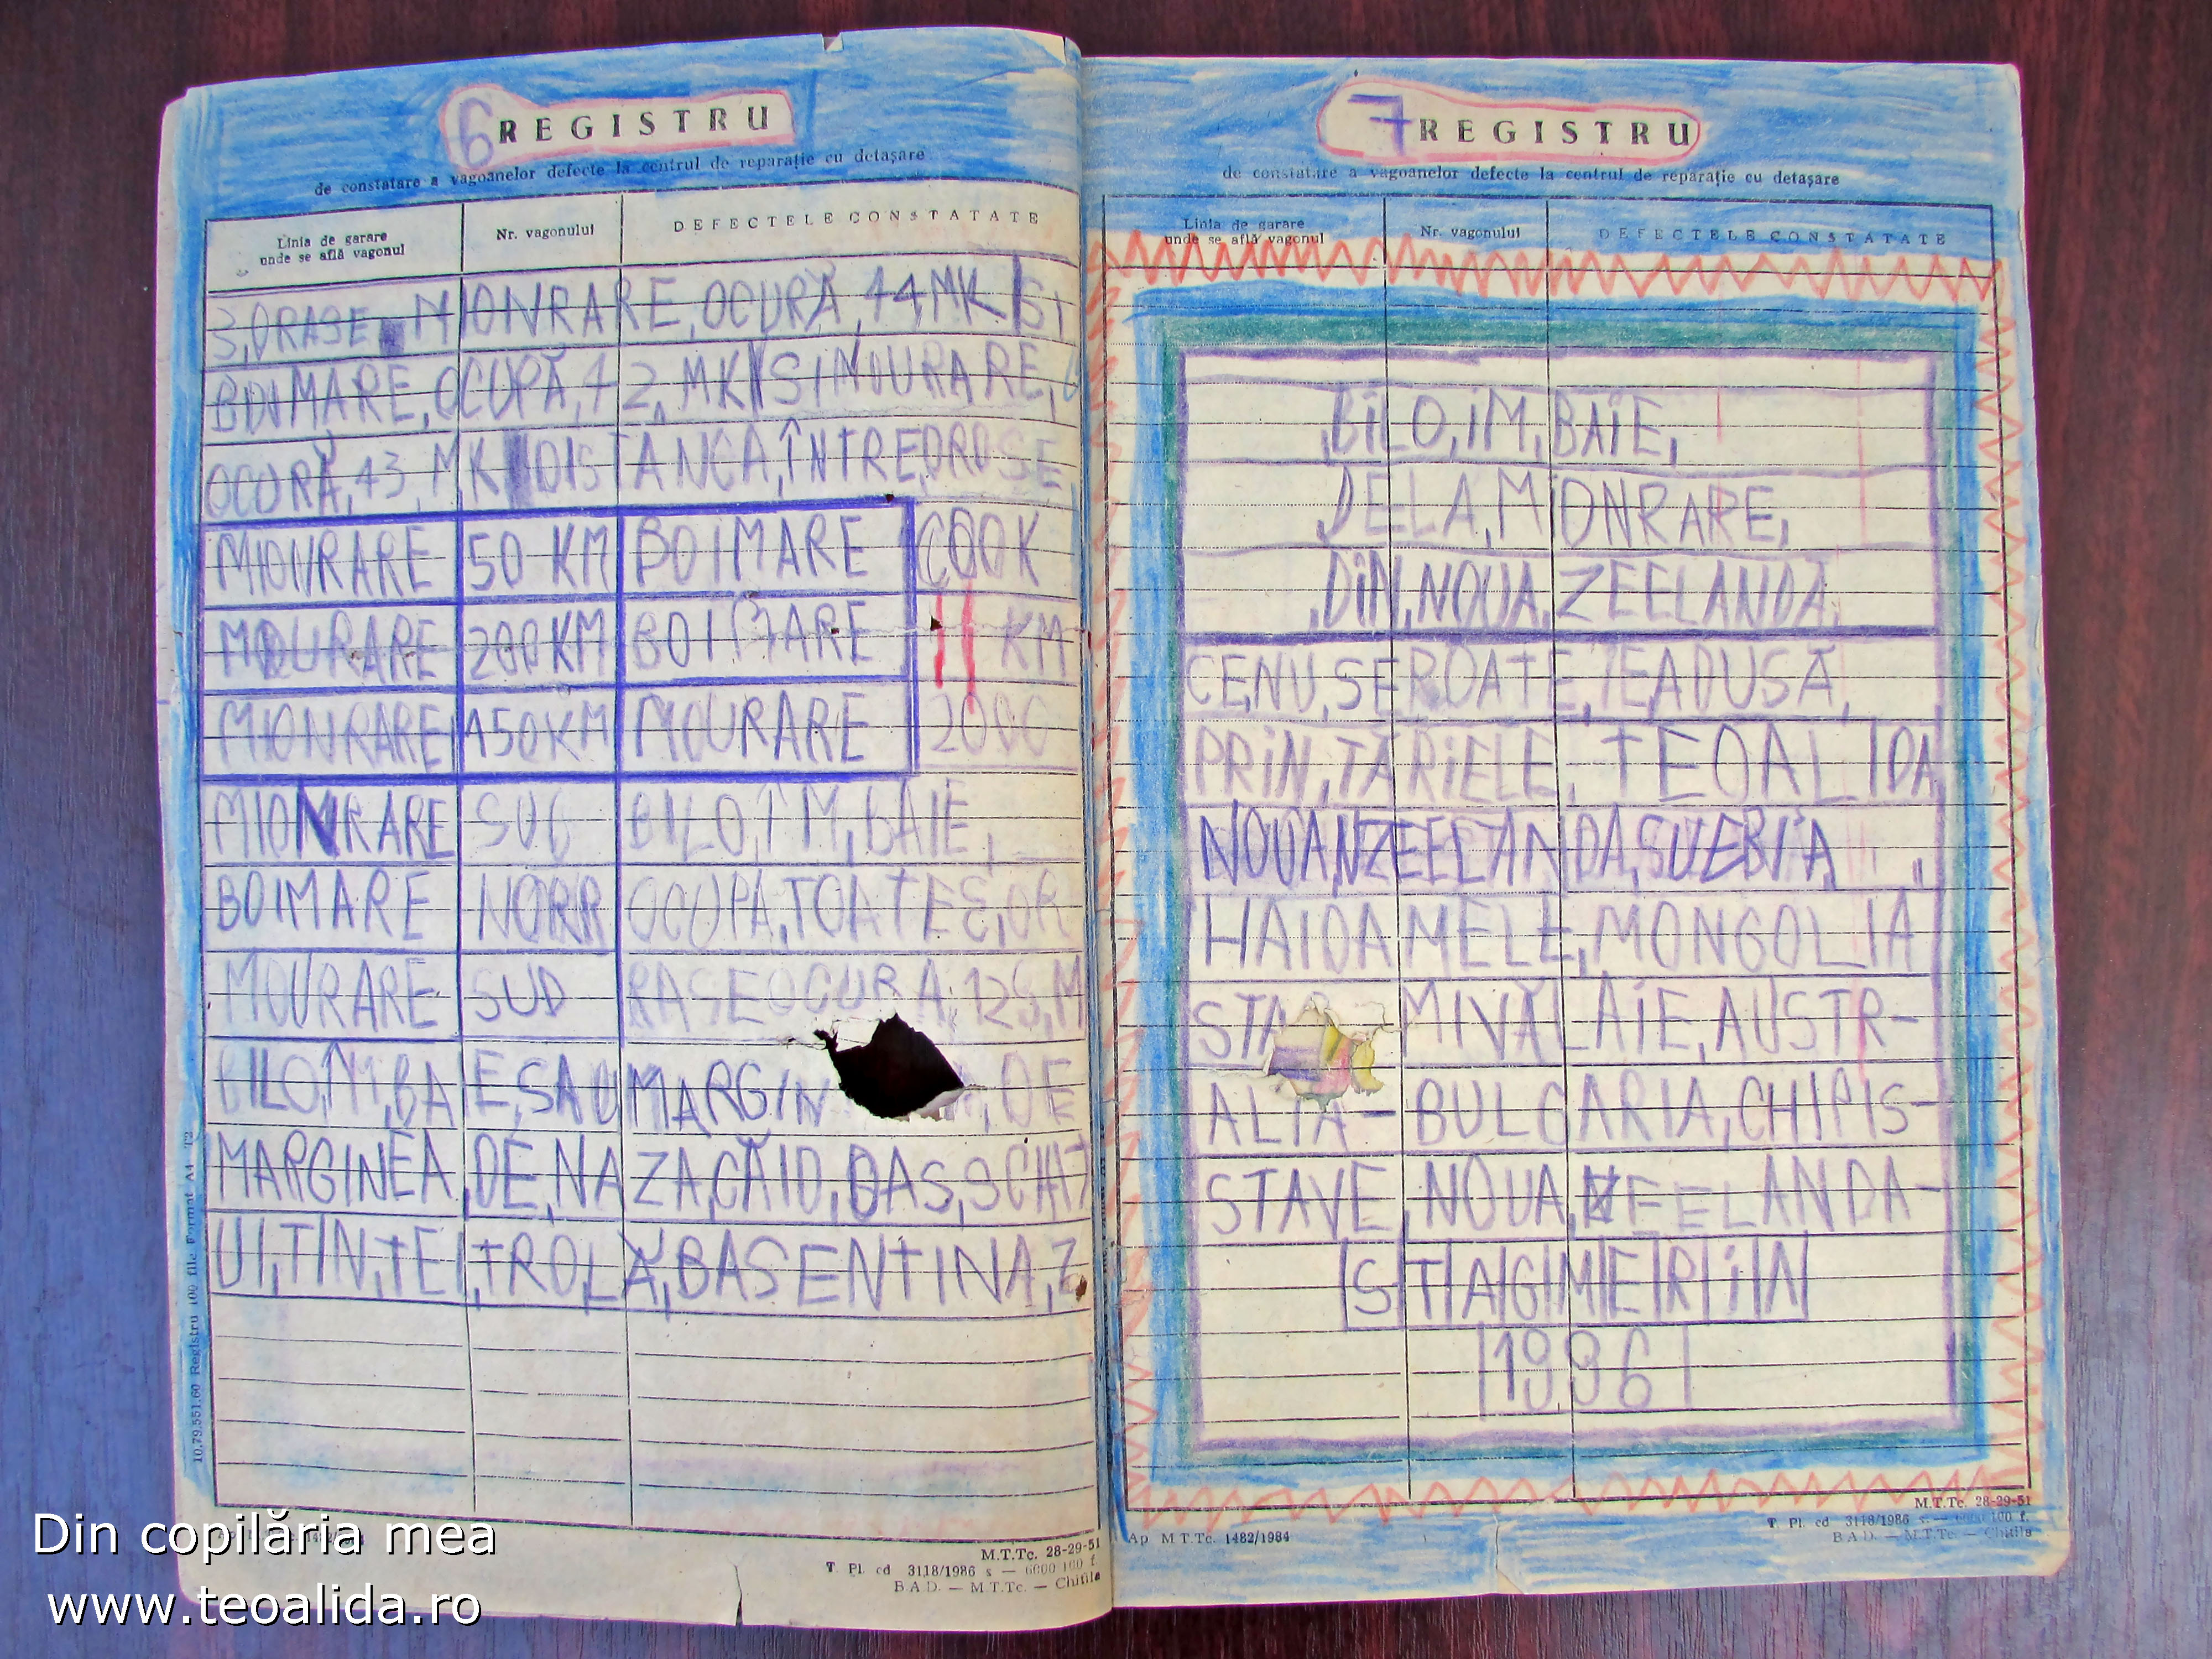 6 REGISTRU
de constatare a vagoanelor defecte la centrul de reparație cu detașare
Linia de garare unde se află vagonul
Nr. vagonului
DEFECTELE CONSTATATE
3,ORASE MIONRARE,OCURĂ,44,MK SI
BOIMARE,OCUPĂ,42,MK SI MOURARE,
OCURĂ,43,MK DISTANCA,ÎNTRE,OROSE,
MIONRARE 50 KM BOIMARE COOK
MOURARE 200KM BOIMARE 11 KM
MIONRARE 450KM MOURARE 2000
MIONRARE SUG BILO,ÎM,BAIE,
BOIMARE NORR OCUPA,TOATEE,OR
MOURARE SUD RASEOCURA,129,M
BILO,ÎM,BAE,SAU MARGIN ,DE
MARGINEA,DE,NAZA,CĂID,OAS,SCHIT
UI,TIN,TEI,TROLĂ,BASENTINA,Z
10,79.551.60 Registru 100 file Format A4 T2
M.T.Tc. 28-29-51
T. Pl. cd 3118/1986 s — 6000 100 f.
B.A.D. — M.T.Tc. — Chitila
7 REGISTRU
de constatare a vagoanelor defecte la centrul de reparație cu detașare
Linia de garare unde se află vagonul
Nr. vagonului
DEFECTELE CONSTATATE
,BILO,IM,BAIE,
,DELA,MIONRARE,
,DIN,NOUA,ZEELANDA,
CENU,SEROATE,IEADUSĂ,
PRIN,TĂRIELE, TEOALIDA,
NOUANZEELANDA,SUEBIA,
HAIDAMELE,MONGOLIA
STA MIVĂLAIE,AUSTR-
ALIA-BULGARIA,CHIPIS-
STAVE,NOUA,ZEELANDA-
STAGMERIN
1996
Ap M T.Tc. 1482/1984
M.T.Tc. 28-29-51
T. Pl. cd 3118/1986 s — 6000 100 f.
B.A.D. — M.T.Tc. — Chitila
Din copilăria mea
www.teoalida.ro